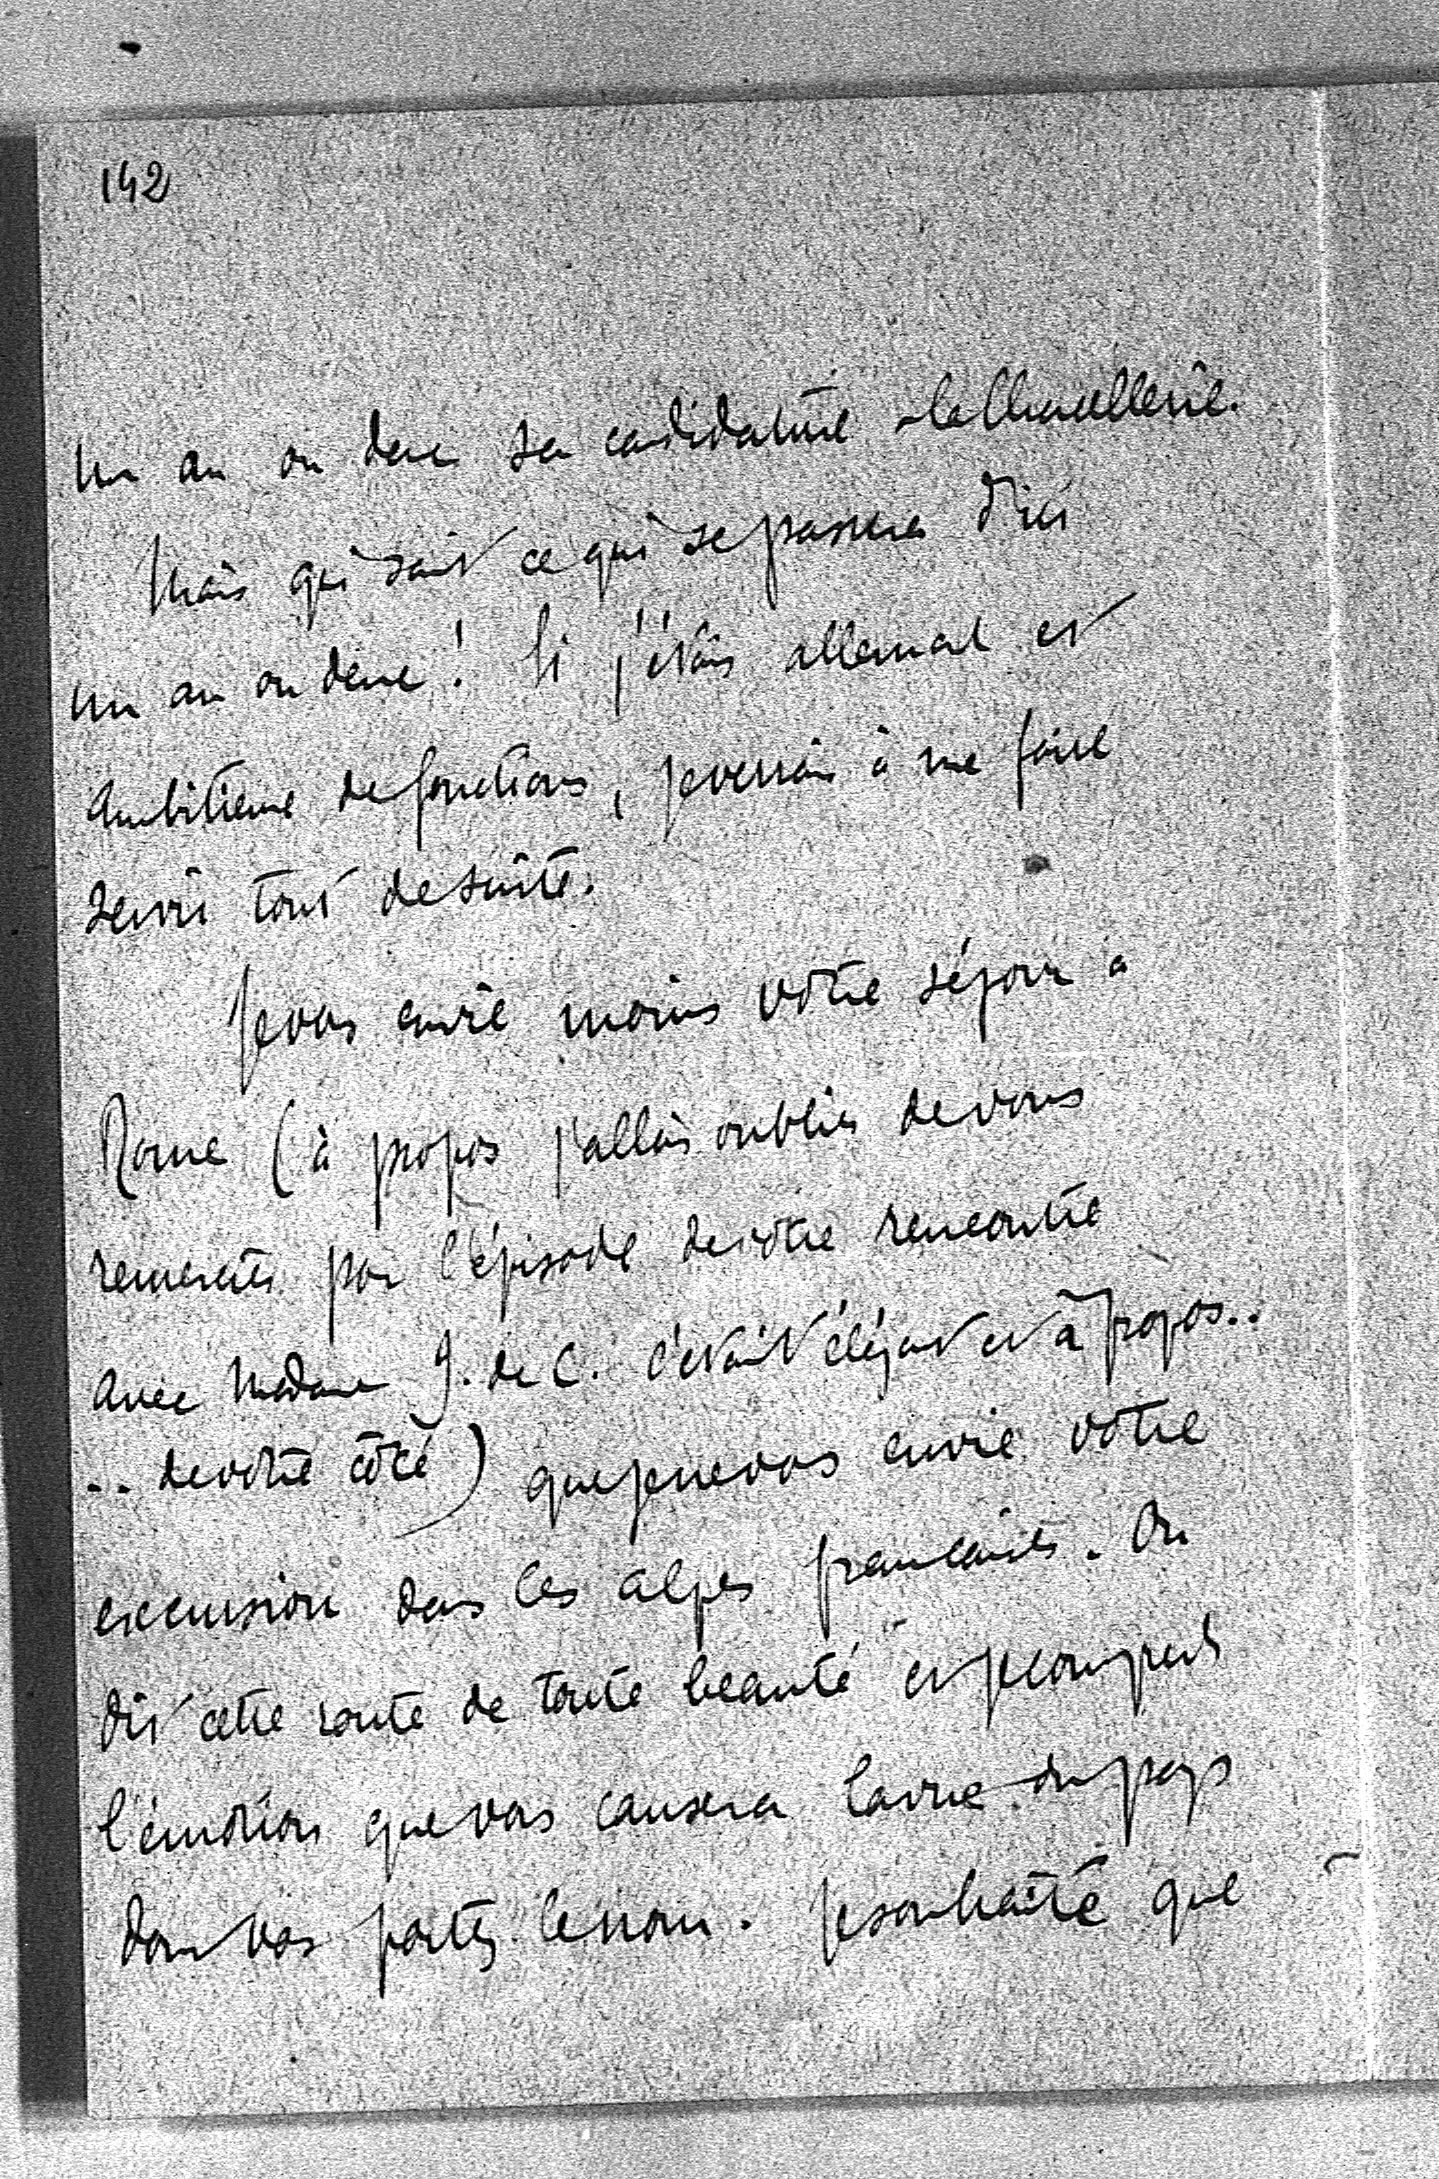 142
un an ou deux sa candidature à la Chancellerie.
Mais qui sait ce qui se passera d'ici
un an ou deux ! Si j'étais allemand et
ambitieux de fonctions, je verrais à me faire
servir tout de suite.
Je vous envie moins votre séjour à
Rome (à propos j'allais oublier de vous
remercier pour l'épisode de votre rencontre
avec Madame J. de C. c'était élégant et à propos..
.. de votre côté) que je ne vous envie votre
excursion dans les alpes françaises. On
dit cette route de toute beauté et je comprends
l'émotion que vous causera la vue du pays
dont vous portez le nom. Je souhaite que